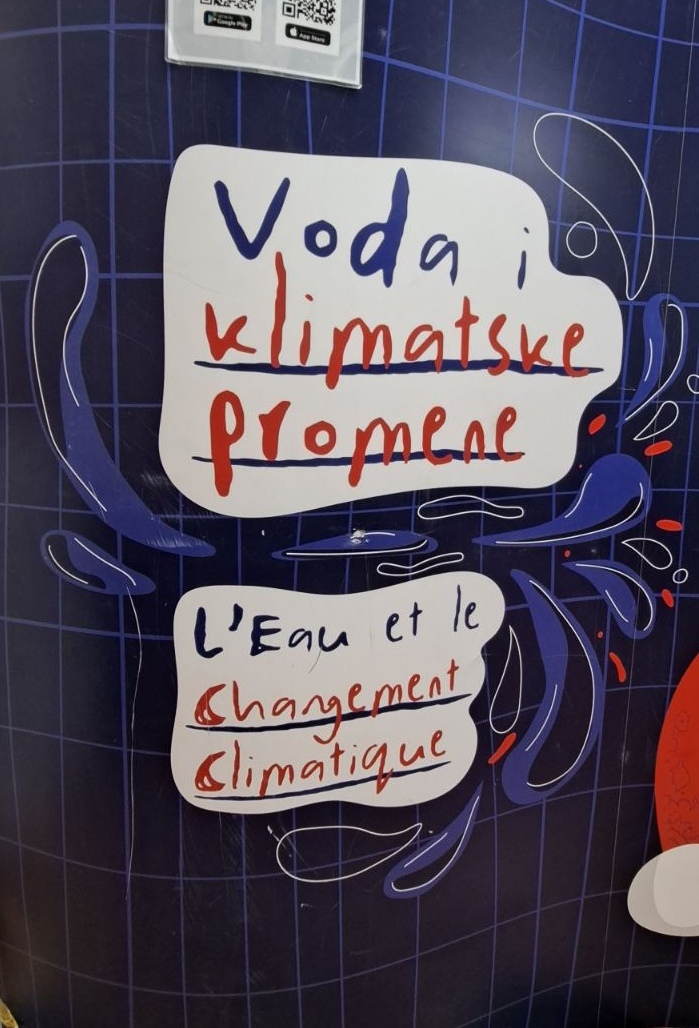 Google Play
App Store
Voda i
klimatske
promene
L'Eau et le
Changement
Climatique